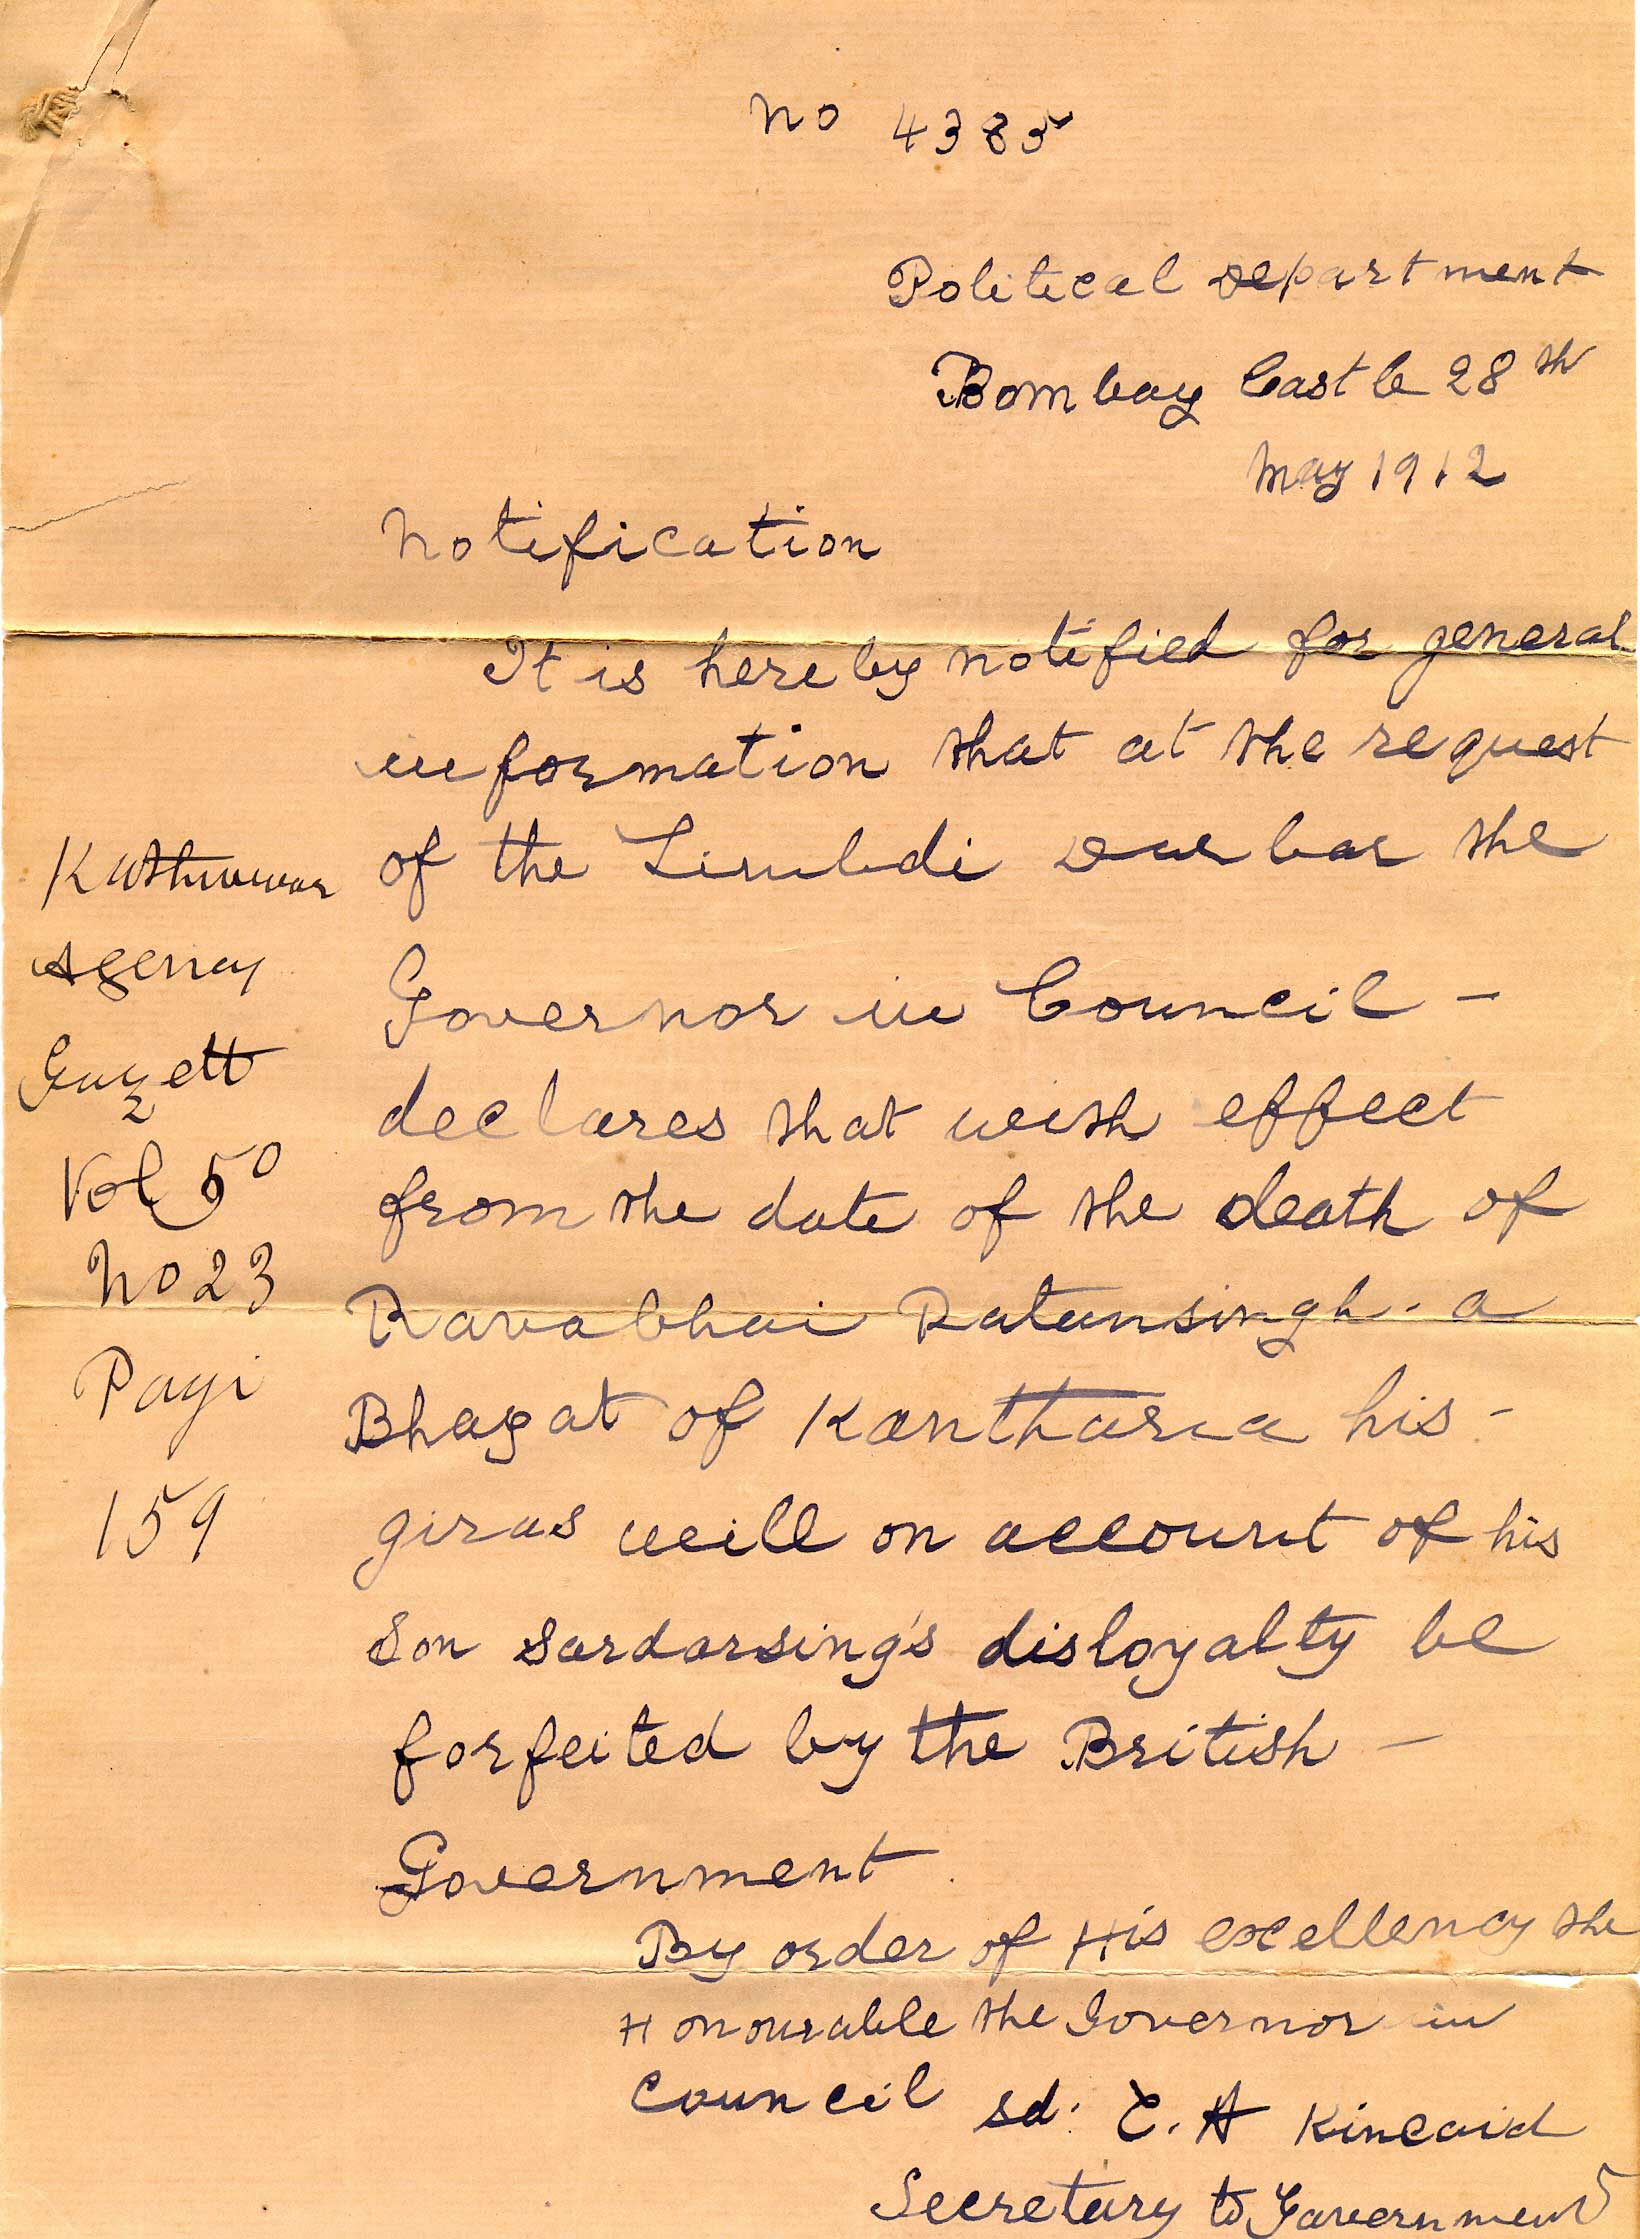 No 4385
Political Department
Bombay Castle 28th
May 1912
Notification
It is hereby notified for general
information that at the request
of the Limbdi Durbar the
Governor in Council -
declares that with effect
from the date of the death of
Ravabhai Ratansingh - a
Bhayat of Kantharia his -
giras will on account of his
son Sardarsing's disloyalty be
forfeited by the British -
Government
By order of His excellency the
Honourable the Governor in
Council sd. C. A Kincaid
Secretary to Government
Kathiawar
Agency
Gazett
Vol 50
No 23
Pagi
159